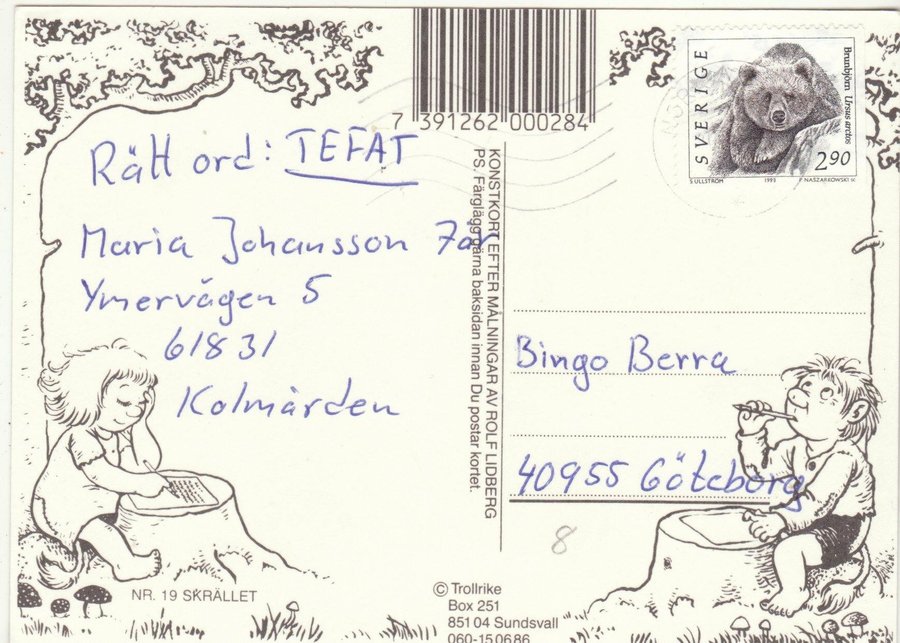 7 391262 000284
SVERIGE
Brunbjörn Ursus arctos
2.90
S ULLSTRÖM 1993 P. NASZARKOWSKI sc
Rätt ord: TEFAT
Maria Johansson 7år
Ymervägen 5
61831
Kolmården
KONSTKORT EFTER MÅLNINGAR AV ROLF LIDBERG
PS. Färglägg gärna baksidan innan Du postar kortet.
Bingo Berra
40955 Göteborg
8
NR. 19 SKRÄLLET
© Trollrike
Box 251
851 04 Sundsvall
060-15 06 86